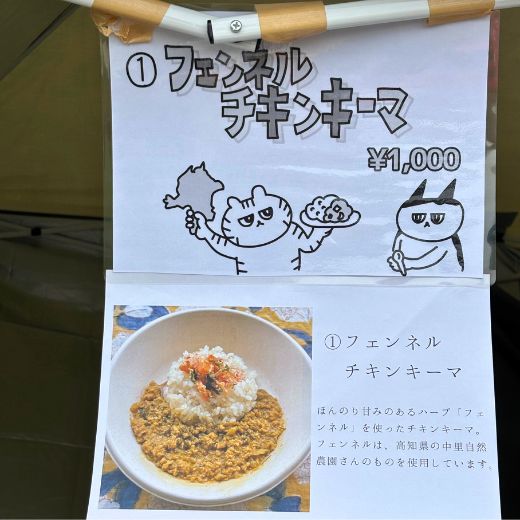 ① フェンネル
チキンキーマ
¥1,000
① フェンネル
チキンキーマ
ほんのり甘みのあるハーブ「フェ
ンネル」を使ったチキンキーマ。
フェンネルは、高知県の中里自然
農園さんのものを使用しています。